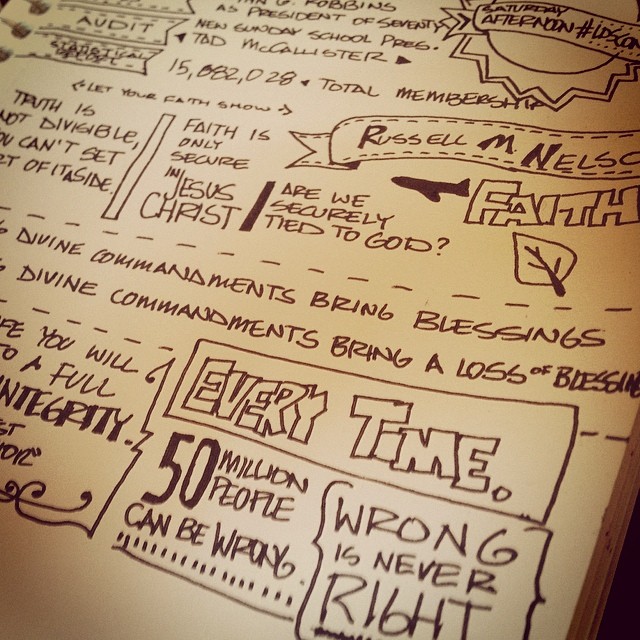 G. ROBBINS
AUDIT
AS PRESIDENT OF SEVENTY
NEW SUNDAY SCHOOL PRES.
TAD McCALLISTER
STATISTICAL
15,882,028 TOTAL MEMBERSHIP
SATURDAY
AFTERNOON #LDSCON
LET YOUR FAITH SHOW
RUSSELL M NELSO
TRUTH IS
NOT DIVISIBLE,
OU CAN'T SET
RT OF IT ASIDE.
FAITH IS
ONLY
SECURE
IN
JESUS
CHRIST
ARE WE
SECURELY
TIED TO GOD?
FAITH
DIVINE COMMANDMENTS BRING BLESSINGS
DIVINE COMMANDMENTS BRING A LOSS OF BLESSIN
FE YOU WILL
TO A FULL
INTEGRITY.
EVERY TIME.
50 MILLION
PEOPLE
CAN BE WRONG.
WRONG
IS NEVER
RIGHT